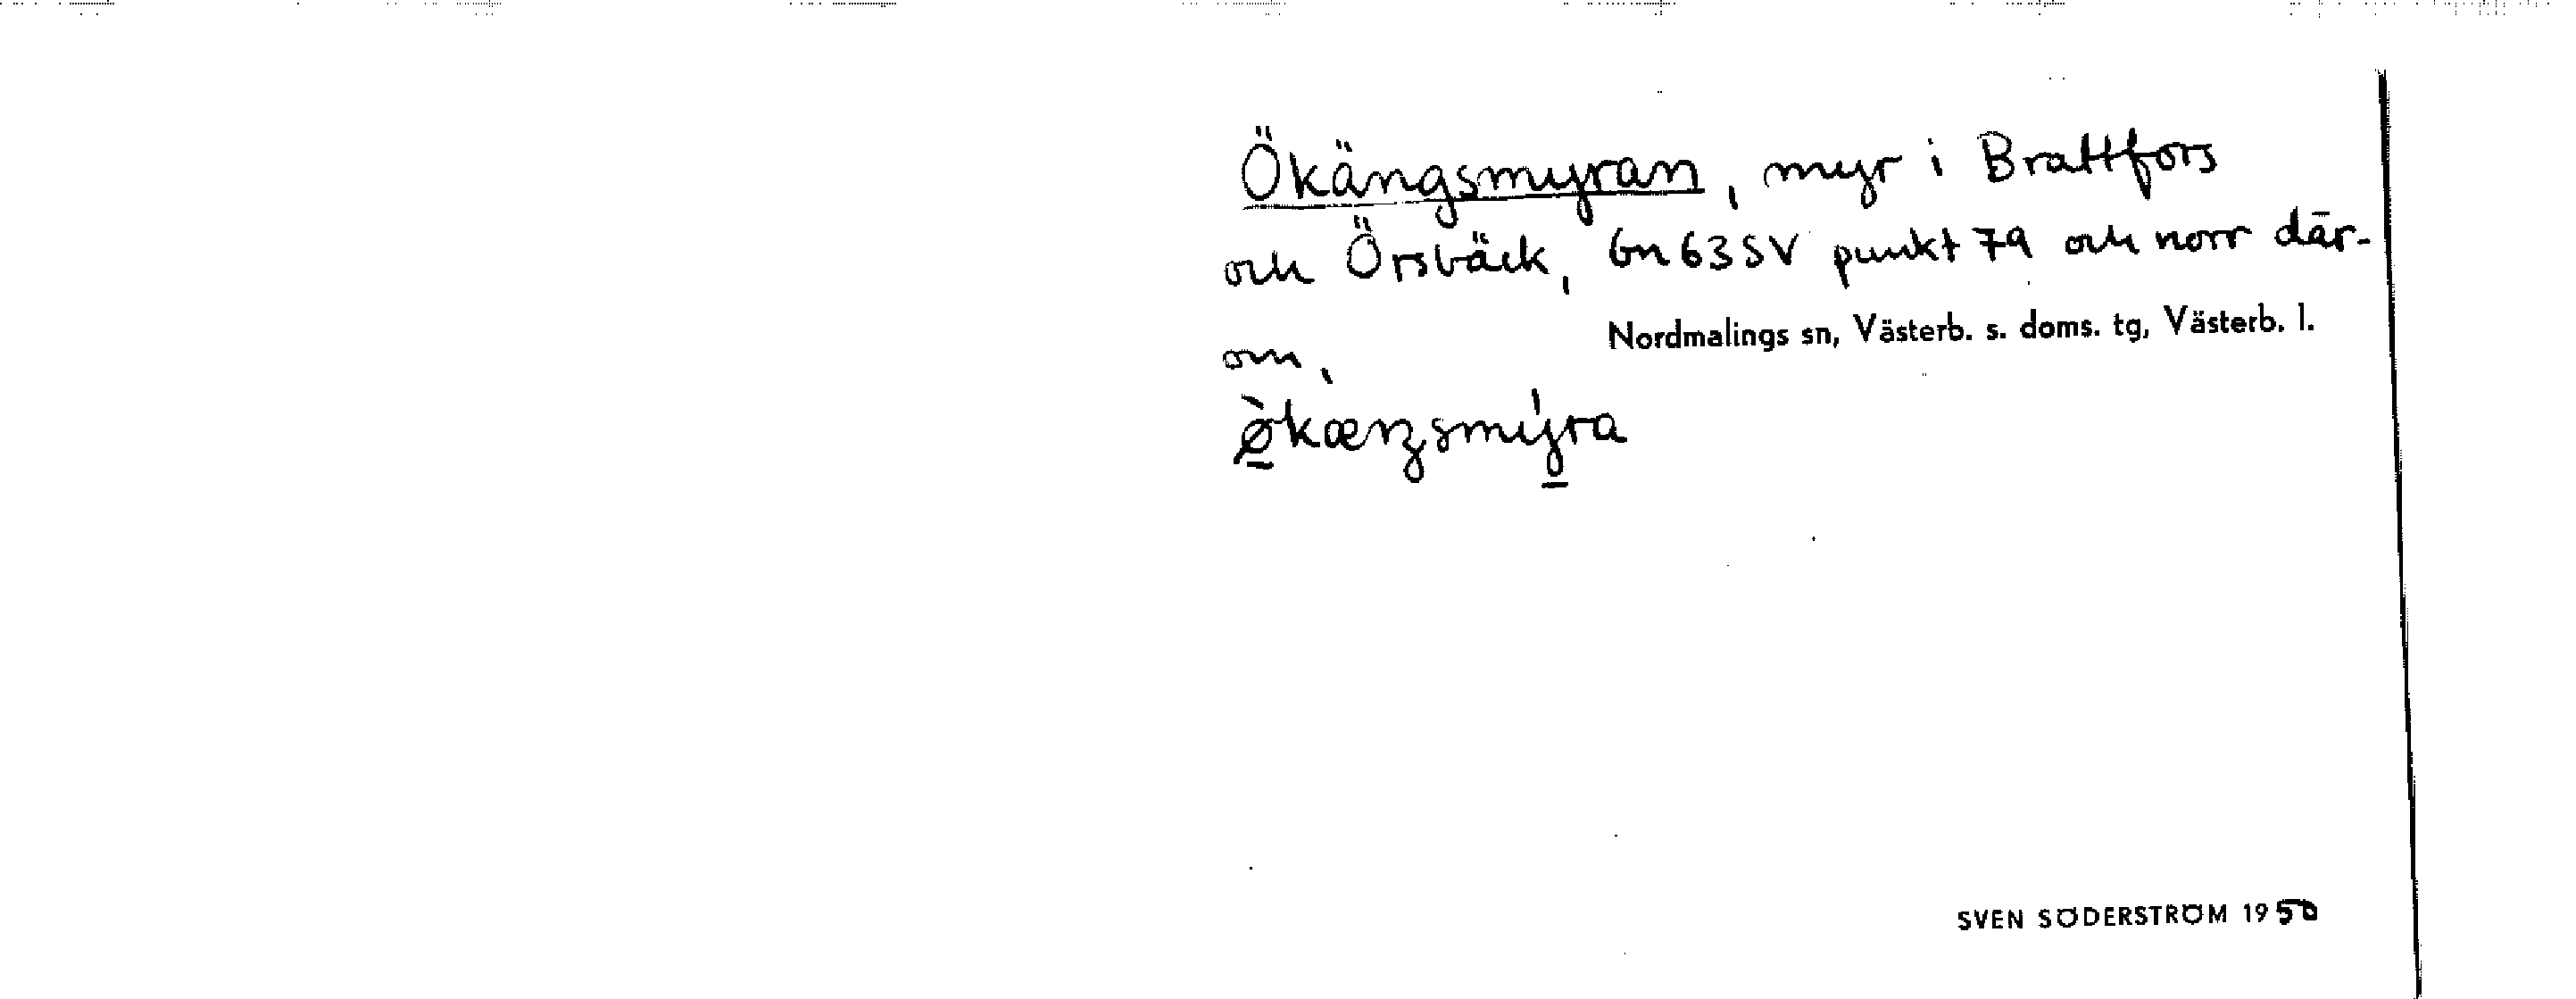 Ökängsmyran, myr i Brattfors
och Örsbäck, Gn 63 SV punkt 79 och norr där-
om.
Nordmalings sn, Västerb. s. doms. tg, Västerb. l.
ø̀kæŋsmýra
SVEN SÖDERSTRÖM 1950